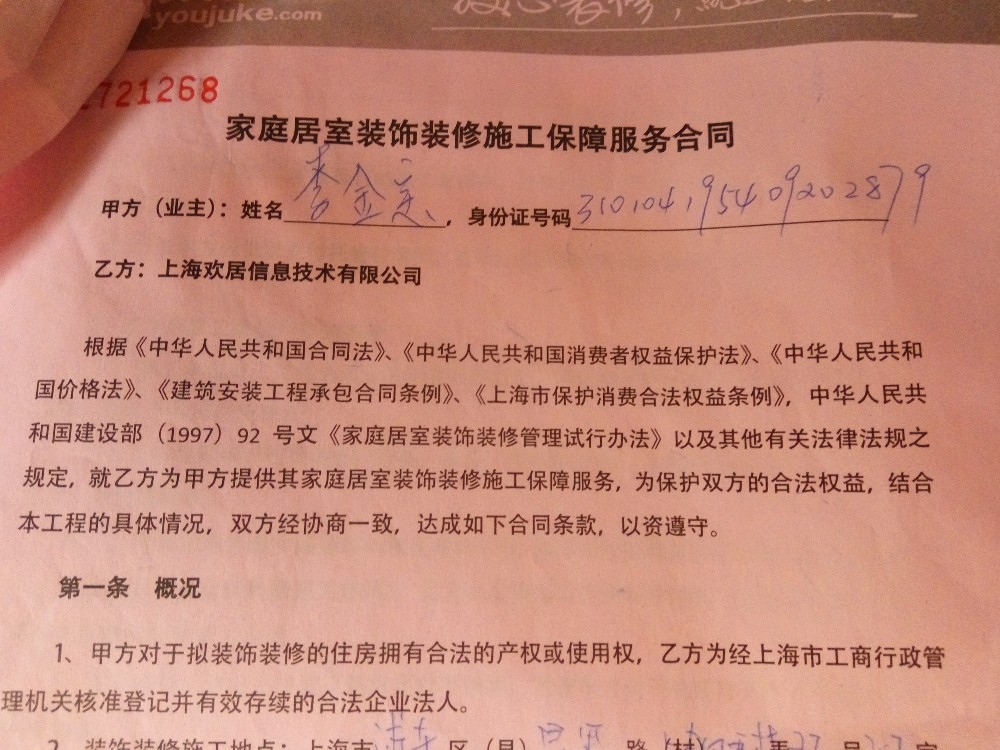 youjuke.com
721268
家庭居室装饰装修施工保障服务合同
甲方（业主）：姓名李金定，身份证号码310104195409202879
乙方：上海欢居信息技术有限公司
根据《中华人民共和国合同法》、《中华人民共和国消费者权益保护法》、《中华人民共和
国价格法》、《建筑安装工程承包合同条例》、《上海市保护消费合法权益条例》，中华人民共
和国建设部（1997）92 号文《家庭居室装饰装修管理试行办法》以及其他有关法律法规之
规定，就乙方为甲方提供其家庭居室装饰装修施工保障服务，为保护双方的合法权益，结合
本工程的具体情况，双方经协商一致，达成如下合同条款，以资遵守。
第一条 概况
1、甲方对于拟装饰装修的住房拥有合法的产权或使用权，乙方为经上海市工商行政管
理机关核准登记并有效存续的合法企业法人。
2、装饰装修施工地点：上海市 区（县） 路（村） 弄 号 室